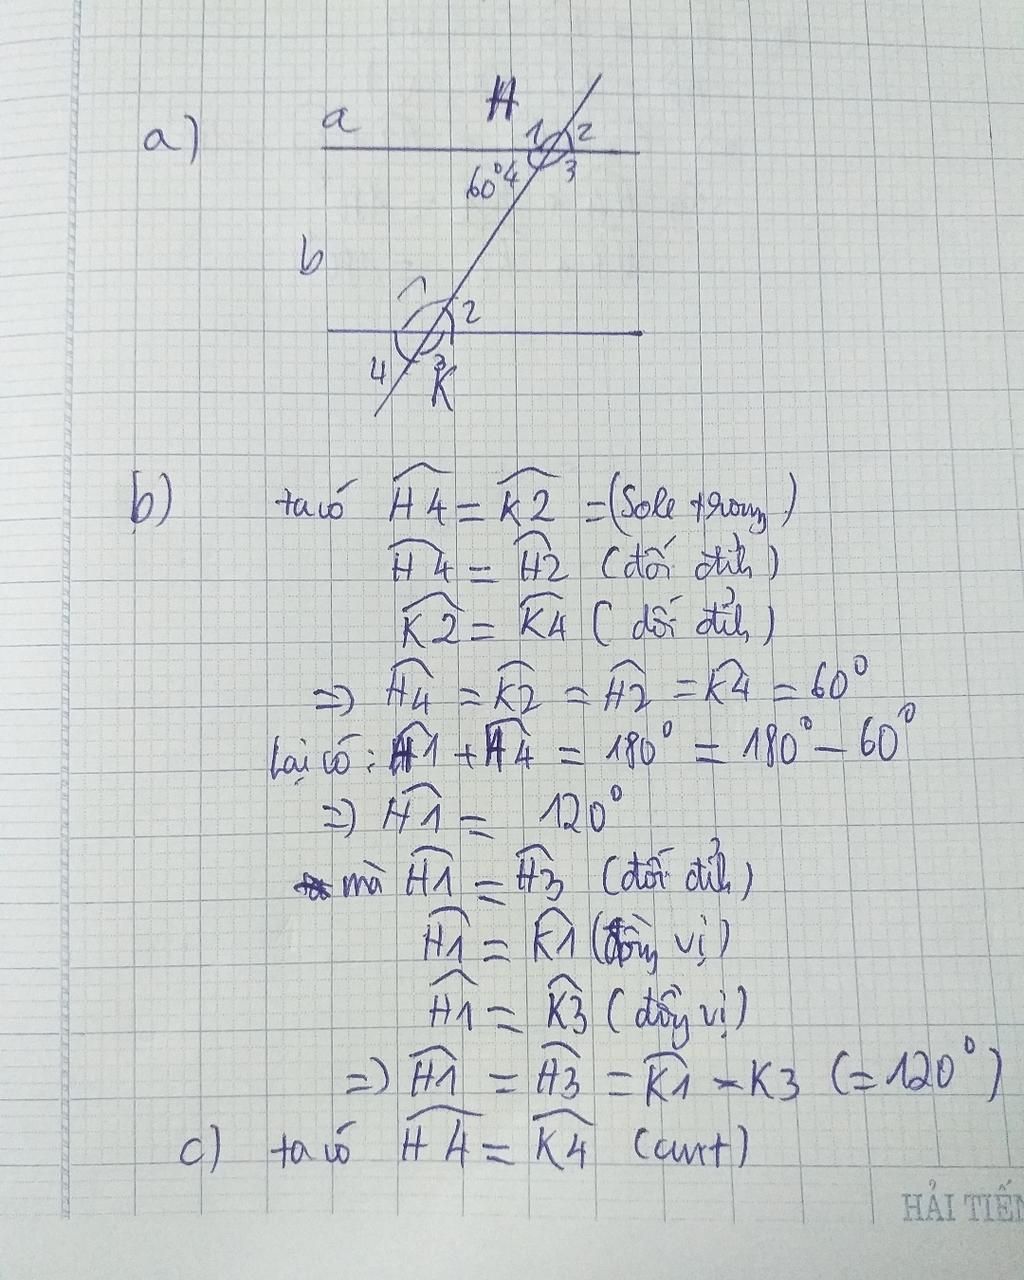 a)
a
H
1 2
60° 4 3
b
1 2
4 3
K
b) ta có H4 = K2 = (Sole trong)
H4 = H2 (đối đỉnh)
K2 = K4 (đối đỉnh)
=> H4 = K2 = H2 = K4 = 60°
Lại có: H1 + H4 = 180° = 180° - 60°
=> H1 = 120°
mà H1 = H3 (đối đỉnh)
H1 = K1 (đồng vị)
H1 = K3 (đồng vị)
=> H1 = H3 = K1 - K3 (= 120°)
c) ta có H4 = K4 (cmt)
HẢI TIẾN